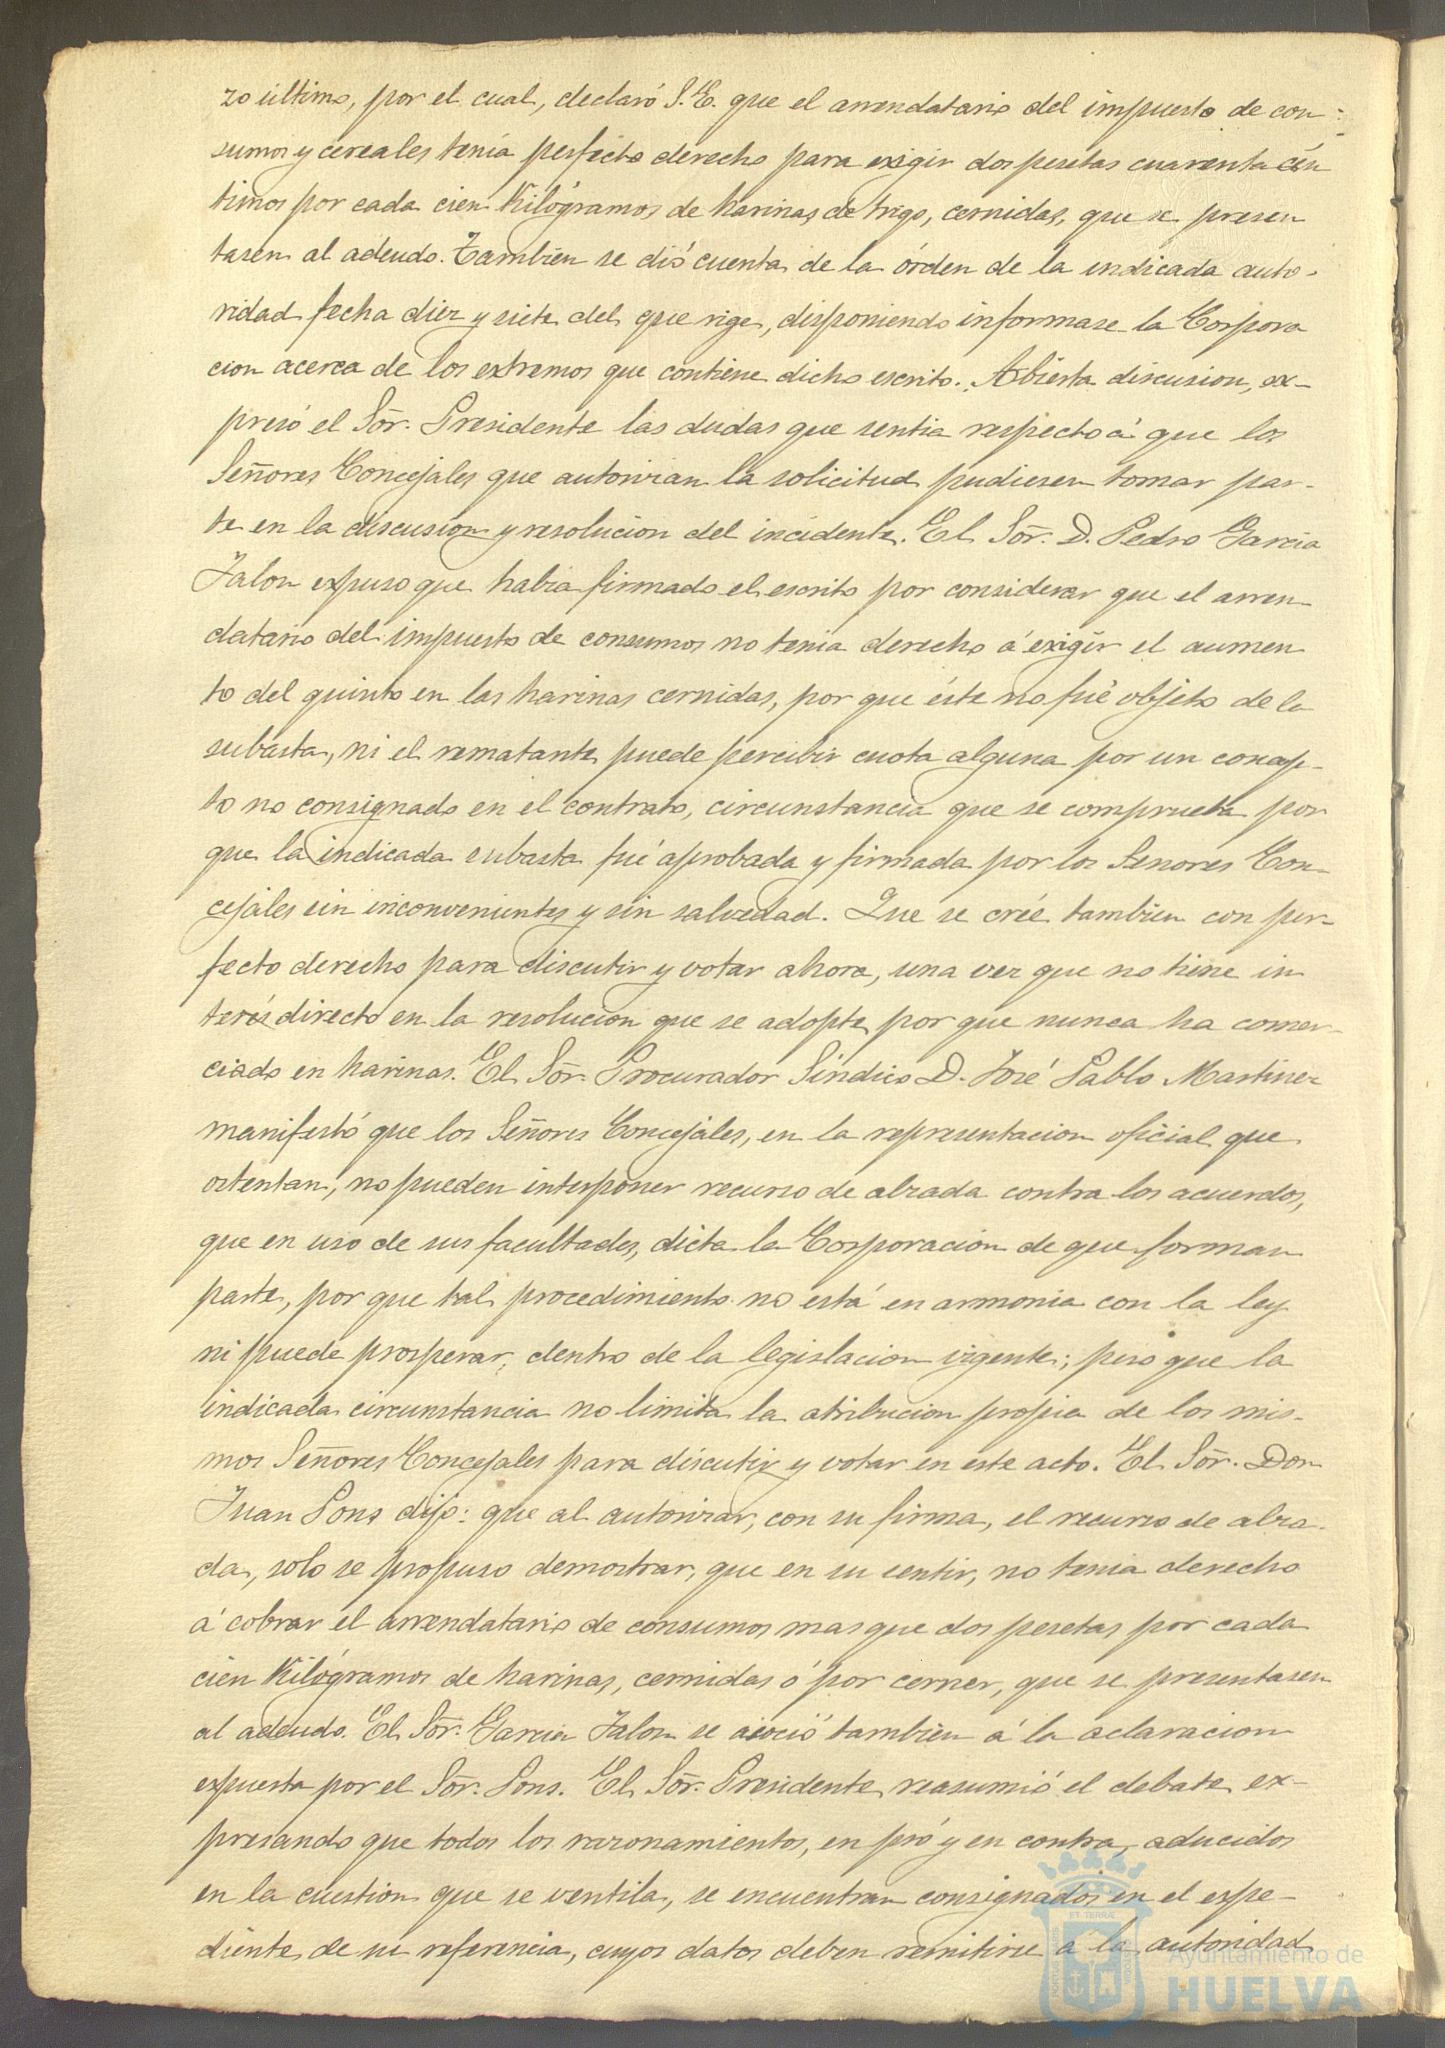 zo último, por el cual, declaró S. E. que el arrendatario del impuesto de con-
sumos y cereales tenía perfecto derecho para exigir dos pesetas cuarenta cén
timos por cada cien Kilógramos de harinas de trigo, cernidas, que se presen
tasen al adeudo. Tambien se dió cuenta de la órden de la indicada auto-
ridad fecha diez y siete del que rige, disponiendo informase la Corpora
cion acerca de los extremos que contiene dicho escrito. Abierta discusion, ex-
presó el Sor. Presidente las dudas que sentia respecto á que los
Señores Concejales que autorizan la solicitud pudiesen tomar par-
te en la discusion y resolucion del incidente. El Sor. D. Pedro Garcia
Jalon expuso que habia firmado el escrito por considerar que el arren
datario del impuesto de consumos no tenia derecho á exigir el aumen
to del quinto en las harinas cernidas, por que éste no fué objeto de la
subasta, ni el rematante puede percibir cuota alguna por un concep-
to no consignado en el contrato, circunstancia que se comprueba por
que la indicada subasta fué aprobada y firmada por los Señores Con-
cejales sin inconvenientes y sin salvedad. Que se crée tambien con per-
fecto derecho para discutir y votar ahora, una vez que no tiene in
terés directo en la resolucion que se adopte, por que nunca ha comer-
ciado en harinas. El Sor. Procurador Síndico D. José Pablo Martinez
manifestó que los Señores Concejales, en la representacion oficial que
ostentan, no pueden interponer recurso de alzada contra los acuerdos,
que en uso de sus facultades, dicta la Corporacion de que forman
parte, por que tal procedimiento no está en armonia con la ley
ni puede prosperar, dentro de la legislacion vigente; pero que la
indicada circunstancia no limita la atribucion propia de los mis-
mos Señores Concejales para discutir y votar en este acto. El Sor. Don
Juan Pons dijo: que al autorizar, con su firma, el recurso de alza-
da, solo se propuso demostrar, que en su sentir, no tenia derecho
á cobrar el arrendatario de consumos mas que dos pesetas por cada
cien Kilógramos de harinas, cernidas ó por cerner, que se presentasen
al adeudo. El Sor. Garcia Jalon se asoció tambien á la aclaracion
expuesta por el Sor. Pons. El Sor. Presidente, reasumió el debate, ex-
presando que todos los razonamientos, en pró y en contra, aducidos
en la cuestion que se ventila, se encuentran consignados en el expe-
diente de su referencia, cuyos datos deben remitirse a la autoridad
Ayuntamiento de
HUELVA